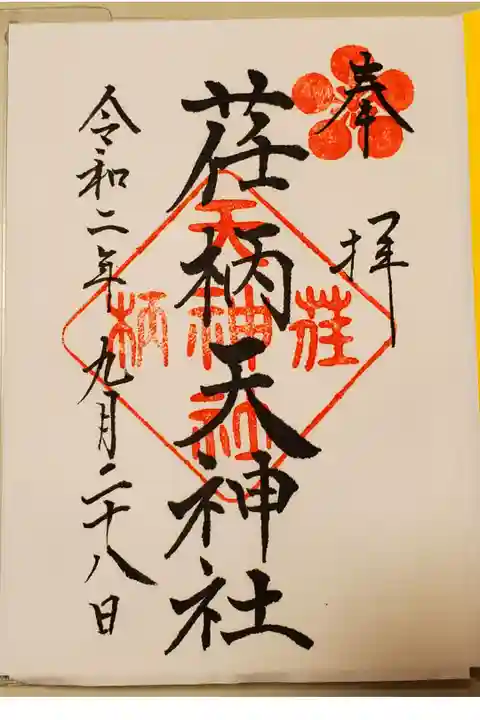 奉拝
荏柄天神社
荏柄
天神社
令和二年九月二十八日